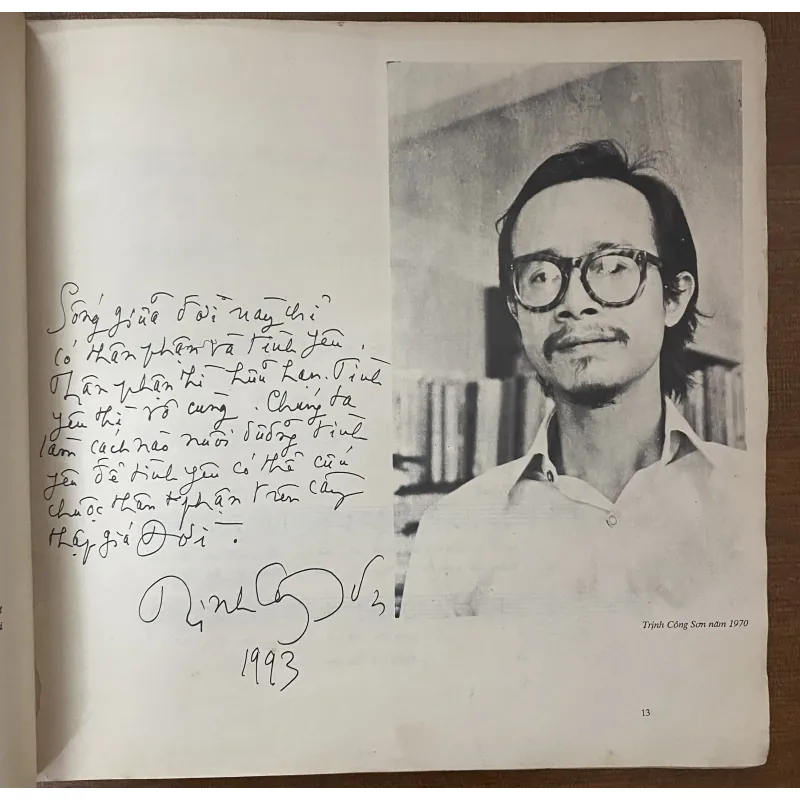 Sống giữa đời này chỉ
có thân phận và tình yêu.
Thân phận thì hữu hạn. Tình
yêu thì vô cùng. Chúng ta
làm cách nào nuôi dưỡng tình
yêu để tình yêu có thể cứu
chuộc thân phận trên cây
thập giá Đời.
Trịnh Công Sơn
1993
Trịnh Công Sơn năm 1970
13